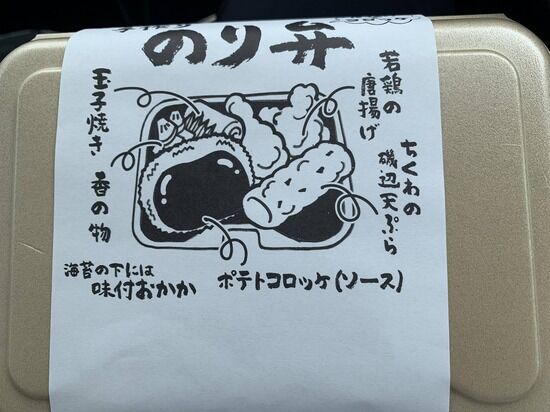 手作り
のり弁
若鶏の
唐揚げ
ちくわの
磯辺天ぷら
玉子焼き
香の物
海苔の下には
味付おかか
ポテトコロッケ(ソース)